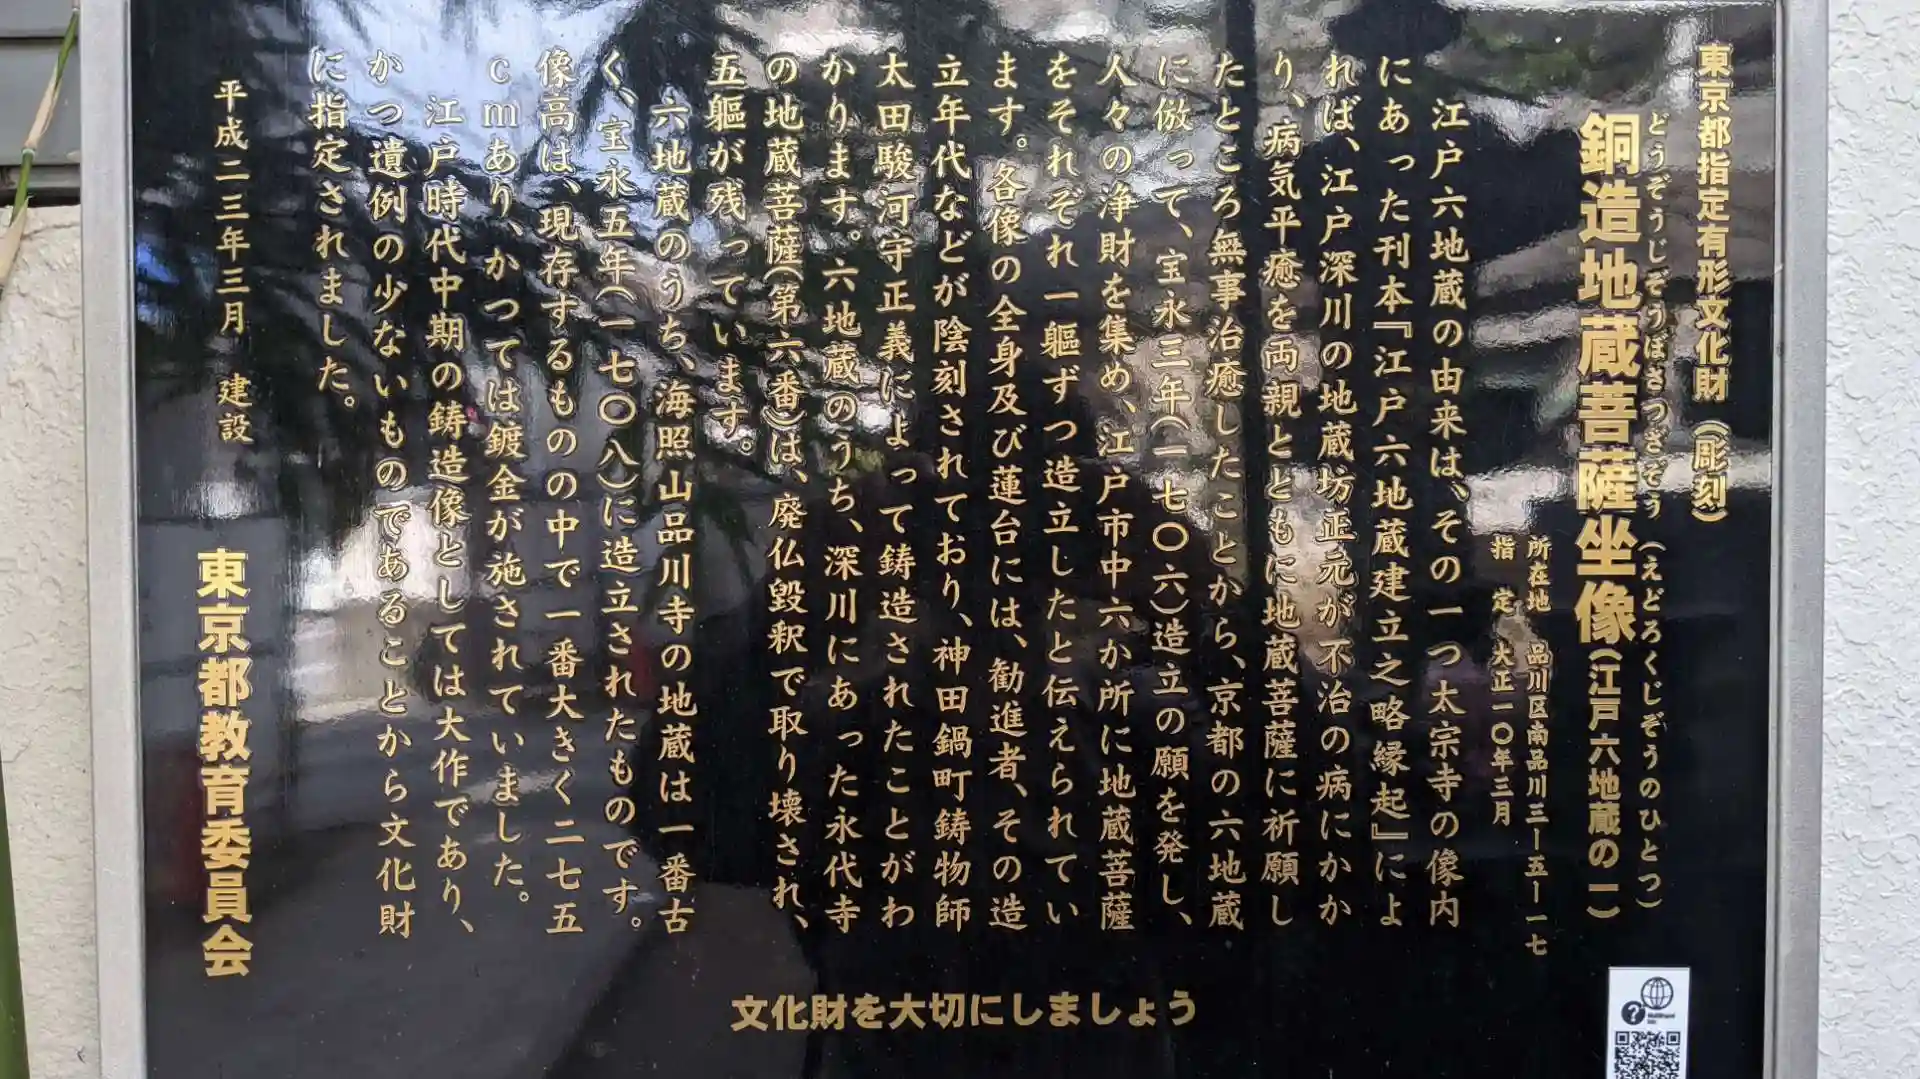 東京都指定有形文化財（彫刻）
どうぞうじぞうぼさつざぞう（えどろくじぞうのひとつ）
銅造地蔵菩薩坐像（江戸六地蔵の一）
所在地　品川区南品川三ー五ー一七
指　定　大正一〇年三月
江戸六地蔵の由来は、その一つ太宗寺の像内
にあった刊本『江戸六地蔵建立之略縁起』によ
れば、江戸深川の地蔵坊正元が不治の病にかか
り、病気平癒を両親とともに地蔵菩薩に祈願し
たところ無事治癒したことから、京都の六地蔵
に倣って、宝永三年（一七〇六）造立の願を発し、
人々の浄財を集め、江戸市中六か所に地蔵菩薩
をそれぞれ一軀ずつ造立したと伝えられてい
ます。各像の全身及び蓮台には、勧進者、その造
立年代などが陰刻されており、神田鍋町鋳物師
太田駿河守正義によって鋳造されたことがわ
かります。六地蔵のうち、深川にあった永代寺
の地蔵菩薩（第六番）は、廃仏毀釈で取り壊され、
五軀が残っています。
六地蔵のうち、海照山品川寺の地蔵は一番古
く、宝永五年（一七〇八）に造立されたものです。
像高は、現存するものの中で一番大きく二七五
ｃｍあり、かつては鍍金が施されていました。
江戸時代中期の鋳造像としては大作であり、
かつ遺例の少ないものであることから文化財
に指定されました。
平成二三年三月　建設
東京都教育委員会
文化財を大切にしましょう